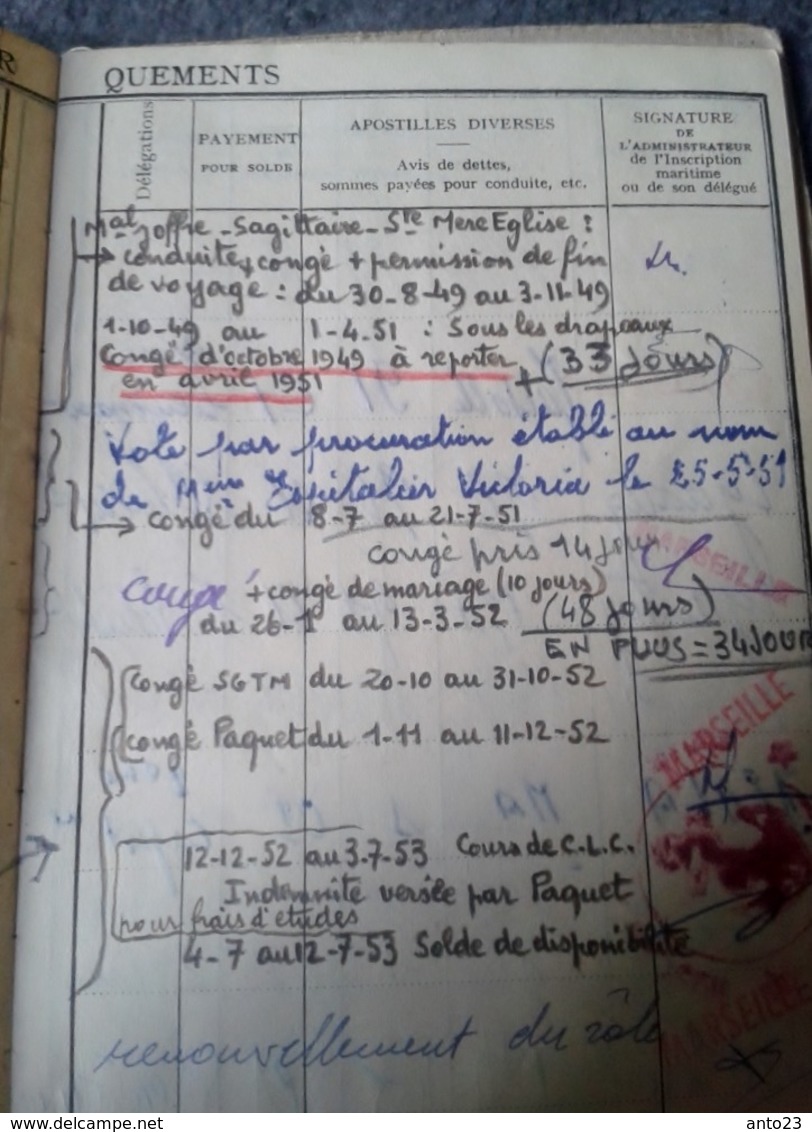 R
QUEMENTS
Délégations
PAYEMENT
POUR SOLDE
APOSTILLES DIVERSES
Avis de dettes,
sommes payées pour conduite, etc.
SIGNATURE
DE
L'ADMINISTRATEUR
de l'Inscription
maritime
ou de son délégué
Mal Joffre - Sagittaire - Ste Mere Eglise :
→ conduite + congé + permission de fin
de voyage : du 30-8-49 au 3-11-49
1-10-49 au 1-4.51 : Sous les drapeaux
Congé d'octobre 1949 à reporter
en avril 1951
+ (33 Jours)
Vote par procuration établi au nom
de Victoria le 25-5-51
→ congé du 8-7 au 21-7-51
congé pris 14 jours
MARSEILLE
congé + congé de mariage (10 jours)
du 26-1 au 13-3-52 (48 jours)
EN PLUS = 34 JOUR
Congé SGTM du 20-10 au 31-10-52
congé Paquet du 1-11 au 11-12-52
MARSEILLE
12-12-52 au 3.7-53 Cours de C.L.C.
Indemnité versée par Paquet
pour frais d'études
4-7 au 12-7-53 Solde de disponibilité
MARSEILLE
renouvellement du rôle
delcampe.net
anto23